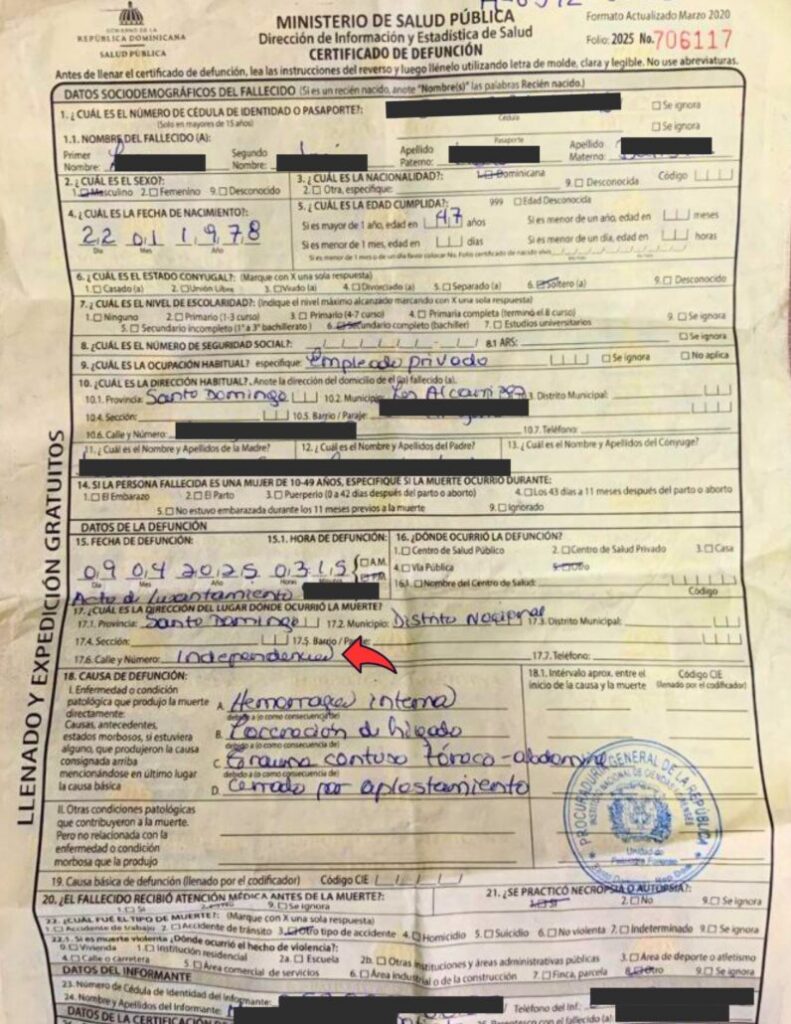 GOBIERNO DE LA
REPÚBLICA DOMINICANA
SALUD PÚBLICA
MINISTERIO DE SALUD PÚBLICA
Dirección de Información y Estadística de Salud
CERTIFICADO DE DEFUNCIÓN
Formato Actualizado Marzo 2020
Folio: 2025 No. 706117
Antes de llenar el certificado de defunción, lea las instrucciones del reverso y luego llénelo utilizando letra de molde, clara y legible. No use abreviaturas.
LLENADO Y EXPEDICIÓN GRATUITOS
DATOS SOCIODEMOGRÁFICOS DEL FALLECIDO (Si es un recién nacido, anote "Nombre(s)" las palabras Recién nacido.
1. ¿CUÁL ES EL NÚMERO DE CÉDULA DE IDENTIDAD O PASAPORTE?: Se ignora
(Solo en mayores de 15 años) Cédula
Se ignora
1.1. NOMBRE DEL FALLECIDO (A): Pasaporte
Primer Nombre: Segundo Nombre: Apellido Paterno: Apellido Materno:
2. ¿CUÁL ES EL SEXO?: 3. ¿CUÁL ES LA NACIONALIDAD?: 1. Dominicana Código
1. Masculino 2. Femenino 9. Desconocido 2. Otra, especifique: 9. Desconocida
4. ¿CUÁL ES LA FECHA DE NACIMIENTO?: 5. ¿CUÁL ES LA EDAD CUMPLIDA?: 999 Edad Desconocida
22 01 1978 Si es mayor de 1 año, edad en 47 años Si es menor de un año, edad en meses
Día Mes Año Si es menor de 1 mes, edad en días Si es menor de un día, edad en horas
6. ¿CUÁL ES EL ESTADO CONYUGAL?: (Marque con X una sola respuesta)
1. Casado (a) 2. Unión Libre 3. Viudo (a) 4. Divorciado (a) 5. Separado (a) 6. Soltero (a) 9. Desconocido
7. ¿CUÁL ES EL NIVEL DE ESCOLARIDAD?: (Indique el nivel máximo alcanzado marcando con X una sola respuesta)
1. Ninguno 2. Primario (1-3 curso) 3. Primario (4-7 curso) 4. Primaria completa (terminó el 8 curso) 9. Se ignora
5. Secundario incompleto (1° a 3° bachillerato) 6. Secundario completo (bachiller) 7. Estudios universitarios
8. ¿CUÁL ES EL NÚMERO DE SEGURIDAD SOCIAL?: 8.1 ARS: Se ignora
9. ¿CUÁL ES LA OCUPACIÓN HABITUAL? especifique: Empleado privado Se ignora No aplica
10. ¿CUÁL ES LA DIRECCIÓN HABITUAL?. Anote la dirección del domicilio de el (la) fallecido (a).
10.1. Provincia: Santo Domingo 10.2. Municipio: Los Alcarrizos 10.3. Distrito Municipal:
10.4. Sección: 10.5. Barrio / Paraje:
10.6. Calle y Número: 10.7. Teléfono:
11. ¿Cuál es el Nombre y Apellidos de la Madre? 12. ¿Cuál es el Nombre y Apellidos del Padre? 13. ¿Cuál es el Nombre y Apellidos del Conyuge?
14. SI LA PERSONA FALLECIDA ES UNA MUJER DE 10-49 AÑOS, ESPECIFIQUE SI LA MUERTE OCURRIÓ DURANTE:
1. El Embarazo 2. El Parto 3. Puerperio (0 a 42 días después del parto o aborto) 4. Los 43 días a 11 meses después del parto o aborto
5. No estuvo embarazada durante los 11 meses previos a la muerte 9. Ignorado
DATOS DE LA DEFUNCIÓN
15. FECHA DE DEFUNCIÓN: 15.1. HORA DE DEFUNCIÓN: 16. ¿DÓNDE OCURRIÓ LA DEFUNCIÓN?
09 04 2025 03 15 A.M. P.M. 1. Centro de Salud Público 2. Centro de Salud Privado 3. Casa
Día Mes Año Horas Minutos 4. Vía Pública 5. Otro
Acta de Levantamiento 16.1. Nombre del Centro de Salud: Código
17. ¿CUÁL ES LA DIRECCIÓN DEL LUGAR DONDE OCURRIÓ LA MUERTE?
17.1. Provincia: Santo Domingo 17.2. Municipio: Distrito Nacional 17.3. Distrito Municipal:
17.4. Sección: 17.5. Barrio / Paraje:
17.6. Calle y Número: Independencia 17.7. Teléfono:
18. CAUSA DE DEFUNCIÓN: 18.1. Intérvalo aprox. entre el inicio de la causa y la muerte Código CIE (llenado por el codificador)
I. Enfermedad o condición patológica que produjo la muerte directamente:
A. Hemorragia interna
debido a (o como consecuencia de)
Causas, antecedentes, estados morbosos, si estuviera alguno, que produjeron la causa consignada arriba mencionándose en último lugar la causa básica
B. Laceración de hígado
debido a (o como consecuencia de)
C. trauma contuso tóraco-abdomina
debido a (o como consecuencia de)
D. Cerrado por aplastamiento
II. Otras condiciones patológicas que contribuyeron a la muerte. Pero no relacionada con la enfermedad o condición morbosa que la produjo
PROCURADURÍA GENERAL DE LA REPÚBLICA
INSTITUTO NACIONAL DE CIENCIAS FORENSES
Unidad de
Patología Forense
19. Causa básica de defunción (llenado por el codificador) Código CIE
20. ¿EL FALLECIDO RECIBIÓ ATENCIÓN MÉDICA ANTES DE LA MUERTE?: 21. ¿SE PRACTICÓ NECROPSIA O AUTOPSIA?:
9. Se ignora 1. Si 2. No 9. Se ignora
22. ¿CUÁL FUE EL TIPO DE MUERTE?: (Marque con X una sola respuesta)
1. Accidente de trabajo 2. Accidente de tránsito 3. Otro tipo de accidente 4. Homicidio 5. Suicidio 6. No violenta 7. Indeterminado 9. Se ignora
22.1. Si es muerte violenta ¿Dónde ocurrió el hecho de violencia?:
0. Vivienda 1. Institución residencial 2a. Escuela 2b. Otras instituciones y áreas administrativas públicas 3. Área de deporte o atletismo
4. Calle o carretera 5. Área comercial de servicios 6. Área industrial o de la construcción 7. Finca, parcela 8. Otro 9. Se ignora
DATOS DEL INFORMANTE
23. Número de Cédula de Identidad del Informante:
24. Nombre y Apellidos del Informante Teléfono del Inf.
DATOS DE LA CERTIFICACIÓN